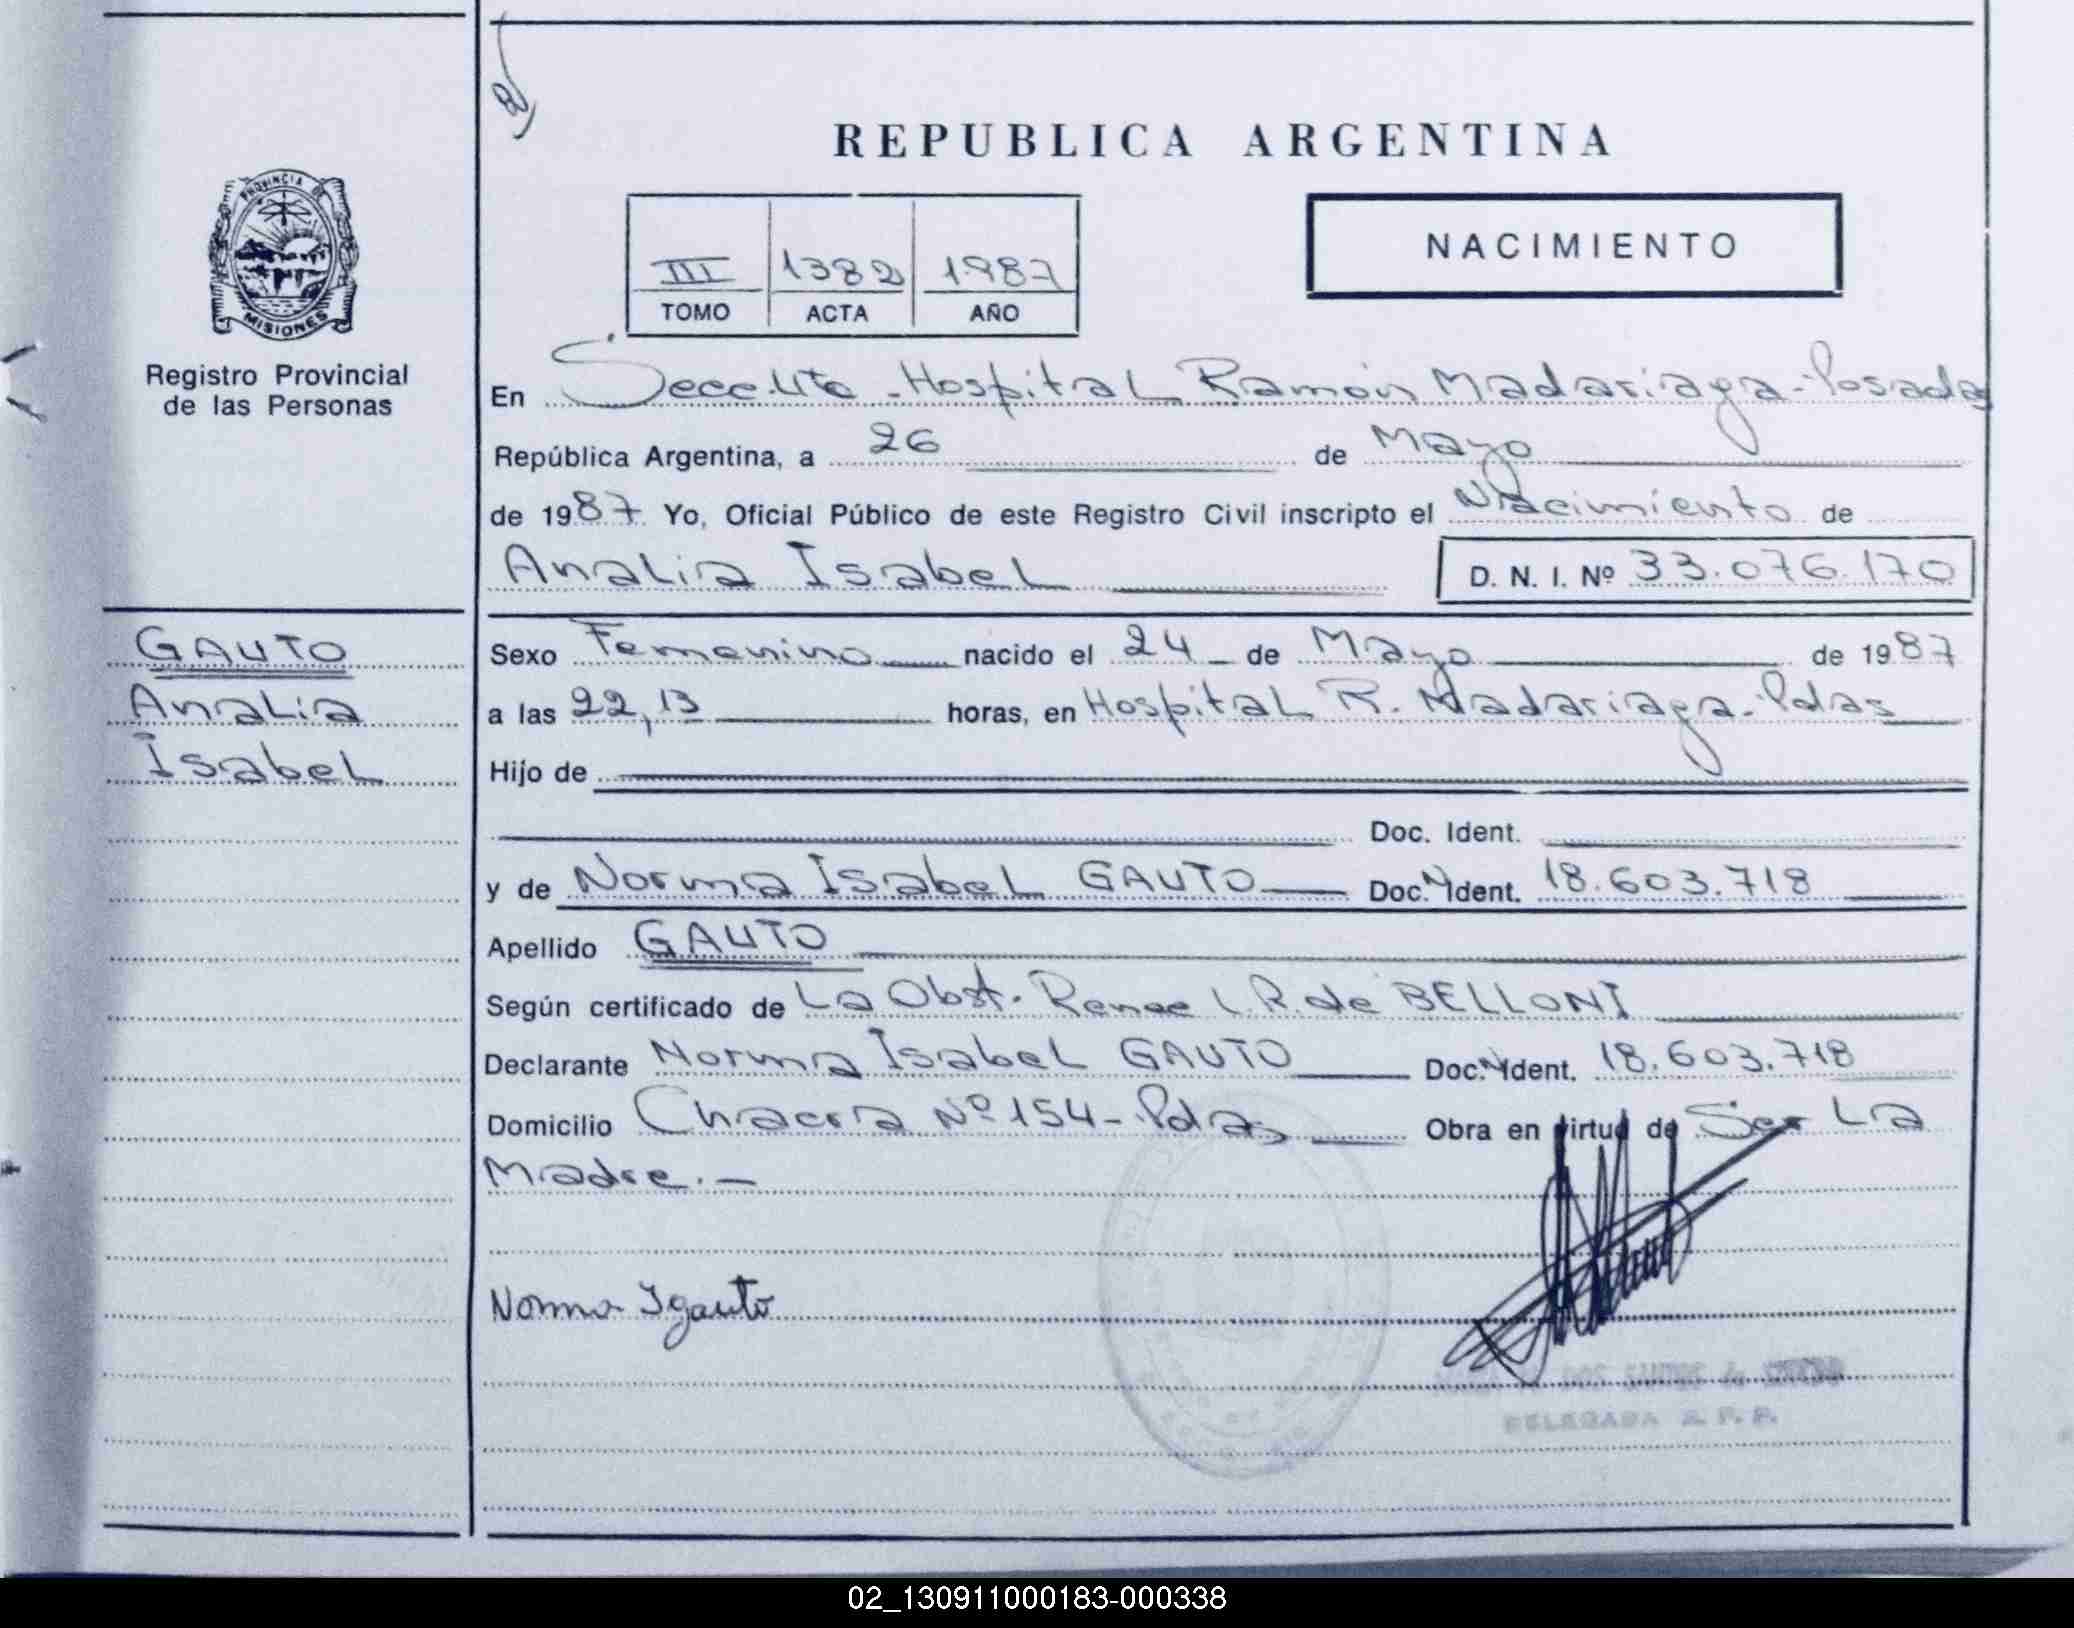 REPUBLICA ARGENTINA
NACIMIENTO
III 1382 1987
TOMO ACTA AÑO
PROVINCIA DE
MISIONES
Registro Provincial
de las Personas
En Secc. Hospital Ramón Madariaga - Posadas
República Argentina, a 26 de Mayo
de 1987 Yo, Oficial Público de este Registro Civil inscripto el Nacimiento de
Analia Isabel D. N. I. Nº 33.076.170
GAUTO
Analia
Isabel
Sexo Femenino nacido el 24 de Mayo de 1987
a las 22,13 horas, en Hospital R. Madariaga - Pdas
Hijo de
Doc. Ident.
y de Norma Isabel GAUTO Doc. Ident. 18.603.718
Apellido GAUTO
Según certificado de La Obst. Renee L. R. de BELLONI
Declarante Norma Isabel GAUTO Doc. Ident. 18.603.718
Domicilio Chacra Nº 154 - Pdas Obra en virtud de Ser La
Madre. -
Norma I gauto
DELEGADA R. P. P.
02_130911000183-000338